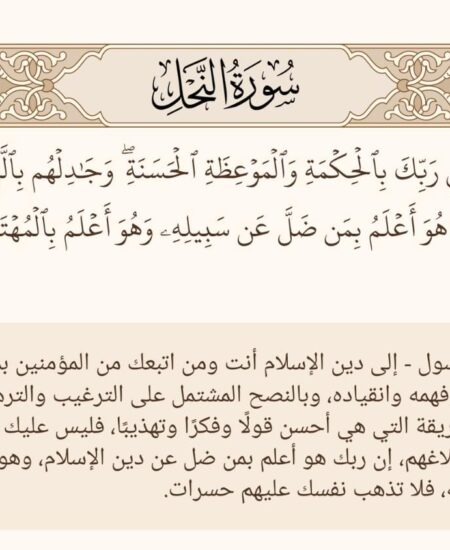 سُورَةُ النَّحْلِ
رَبِّكَ بِٱلۡحِكۡمَةِ وَٱلۡمَوۡعِظَةِ ٱلۡحَسَنَةِۖ وَجَٰدِلۡهُم
هُوَ أَعۡلَمُ بِمَن ضَلَّ عَن سَبِيلِهِۦ وَهُوَ أَعۡلَمُ
- إلى دين الإسلام أنت ومن اتبعك من المؤمنين
فهمه وانقياده، وبالنصح المشتمل على الترغيب
التي هي أحسن قولًا وفكرًا وتهذيبًا، فليس عليك
إن ربك هو أعلم بمن ضل عن دين الإسلام، وهو
فلا تذهب نفسك عليهم حسرات.